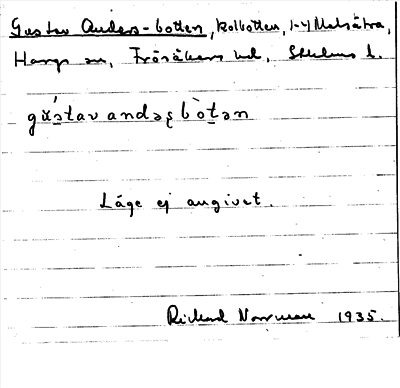 Gustav Anders-botten, kolbotten, 1-4 Malsätra,
Hargs sn, Frösåkers hd, Sthlms l.
gu̇́stav andəʂ bòtən
Läge ej angivet.
Rickard Norrman 1935.